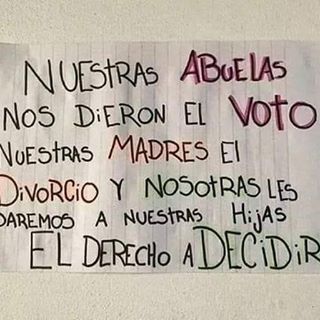 NUESTRAS ABUELAS
NOS DiERON El VOTO
NUESTRAS MADRES El
DiVORCiO Y NOSOTRAS LES
DAREMOS A NUESTRAS HijAS
EL DERECHO A DECiDiR